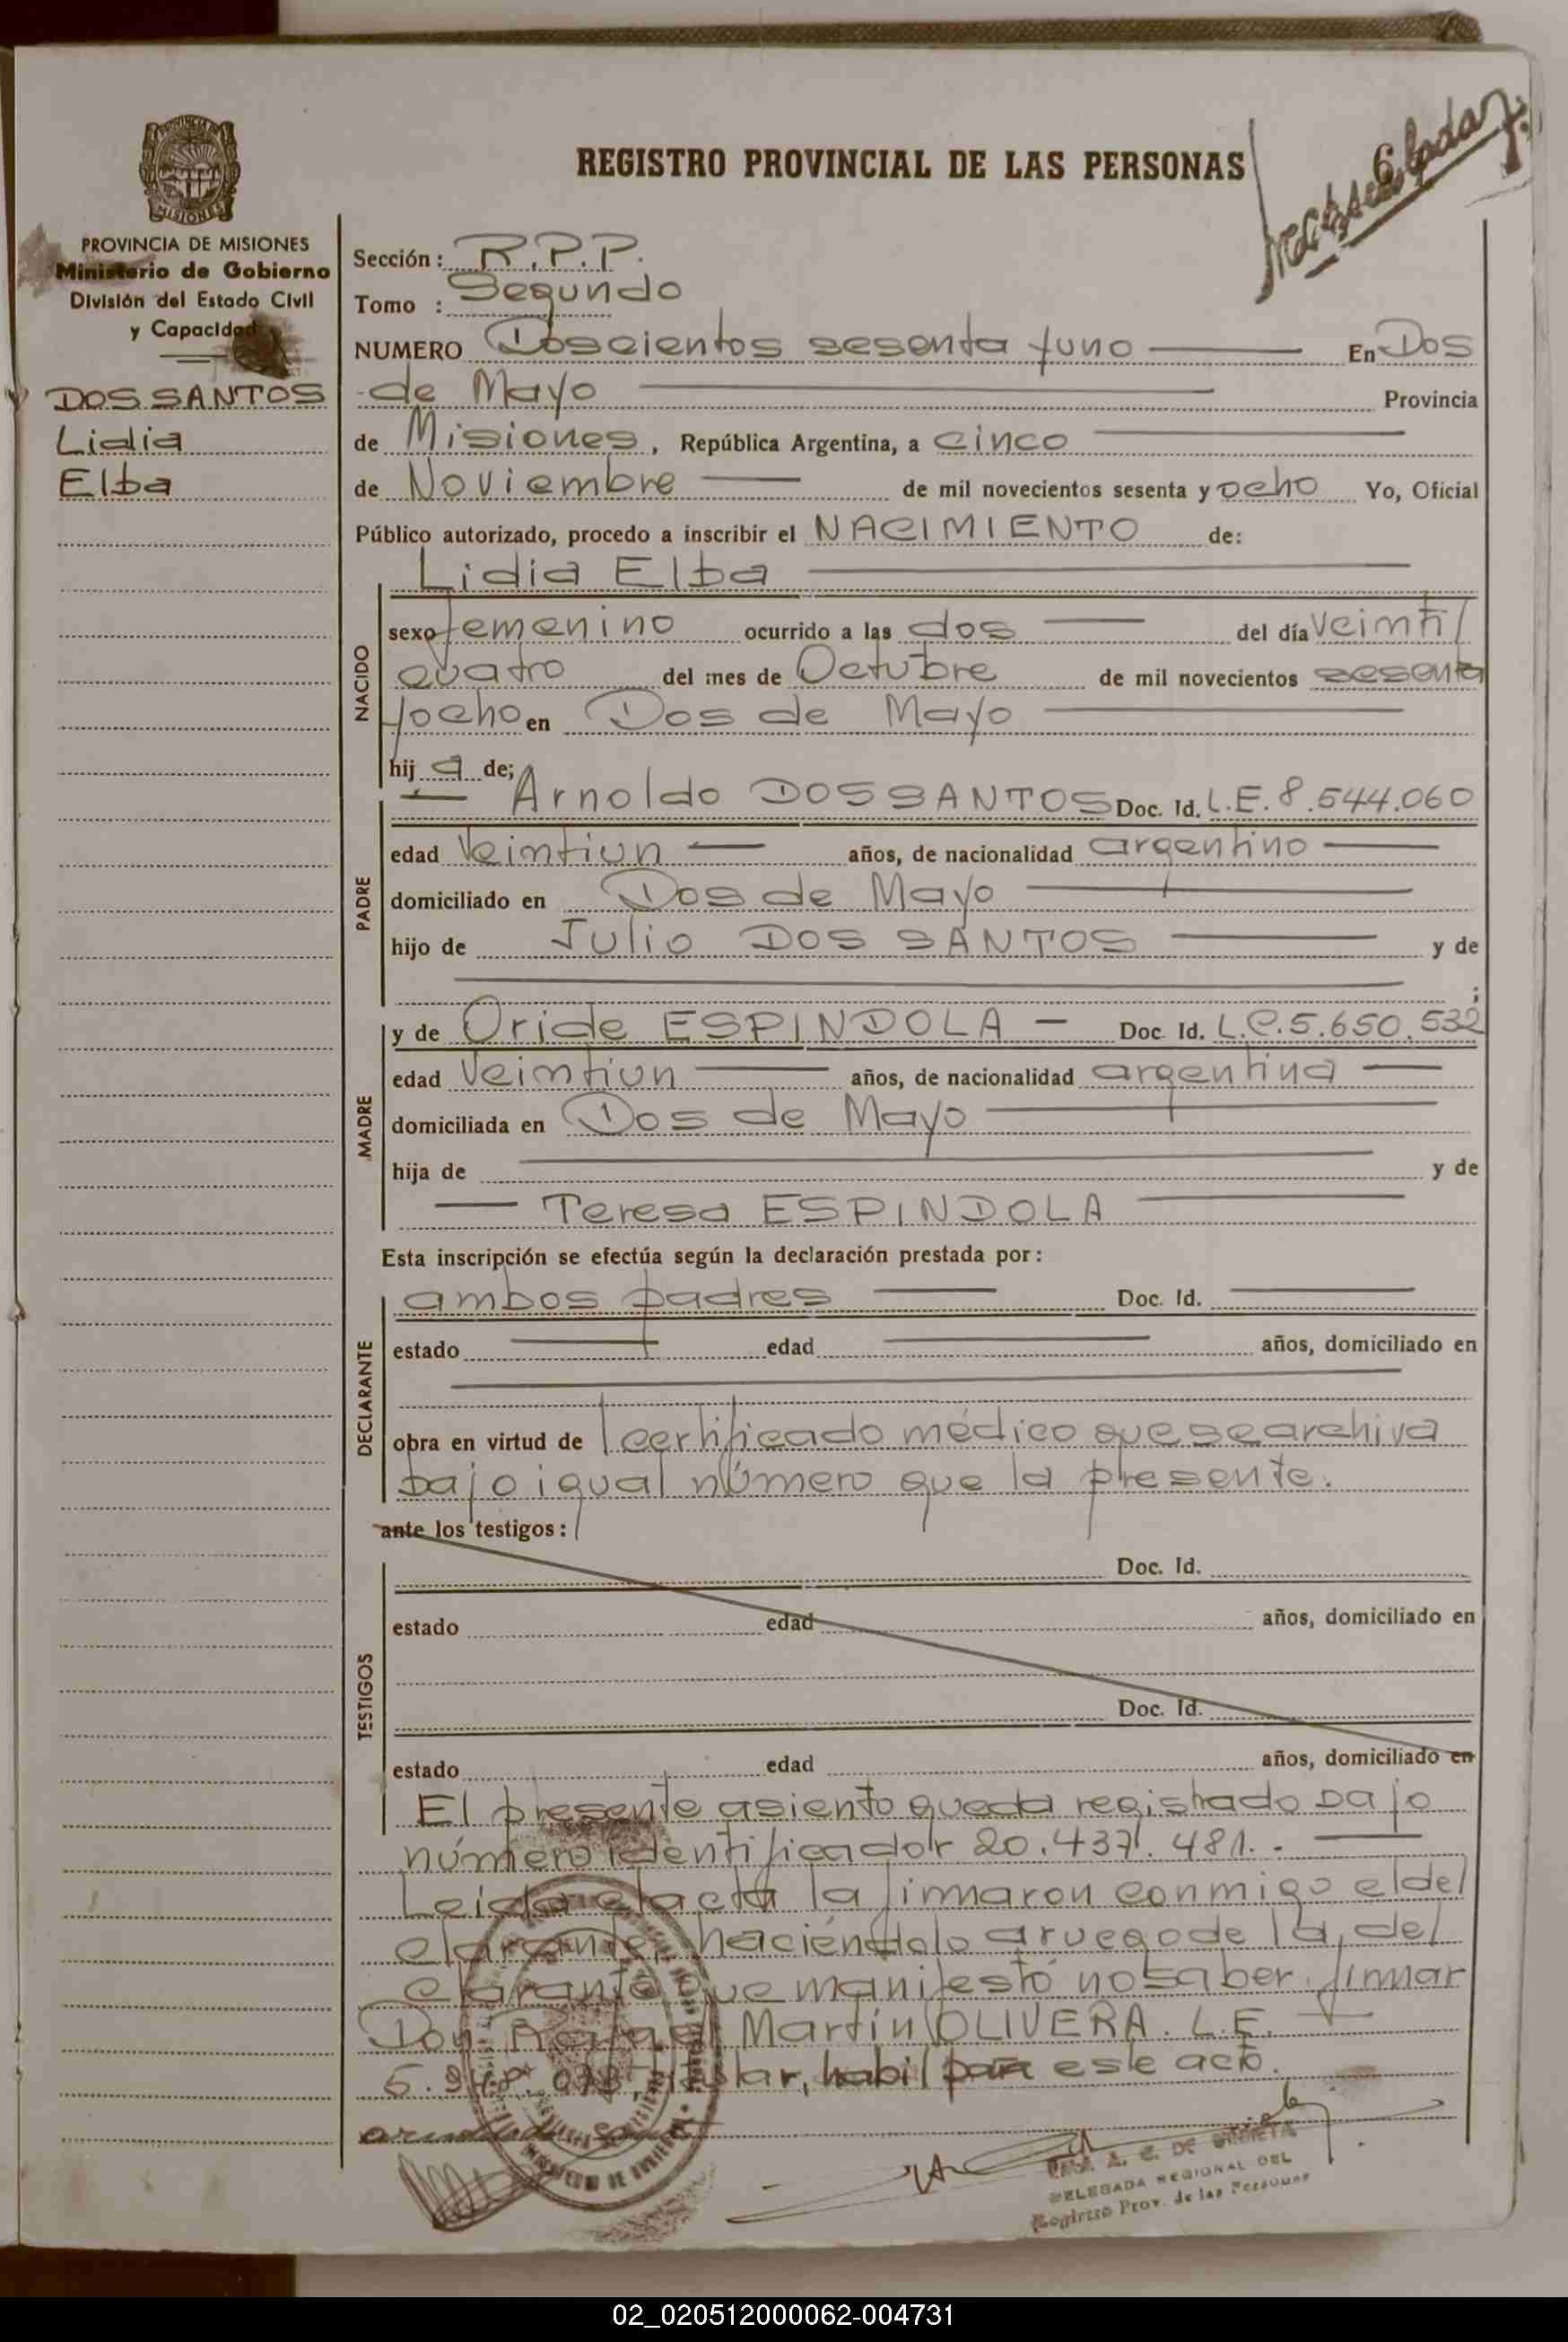 REGISTRO PROVINCIAL DE LAS PERSONAS
PROVINCIA DE MISIONES
Ministerio de Gobierno
División del Estado Civil
y Capacidad
DOS SANTOS
Lidia
Elba
Sección: R.P.P.
Tomo : Segundo
NUMERO Doscientos sesenta y uno En Dos
de Mayo Provincia
de Misiones, República Argentina, a cinco
de Noviembre de mil novecientos sesenta y ocho Yo, Oficial
Público autorizado, procedo a inscribir el NACIMIENTO de:
NACIDO
Lidia Elba
sexo femenino ocurrido a las dos del día veinti
cuatro del mes de Octubre de mil novecientos sesenta
y ocho en Dos de Mayo
hij a de;
PADRE
Arnoldo DOS SANTOS Doc. Id. L.E. 8.544.060
edad Veintiun años, de nacionalidad argentino
domiciliado en Dos de Mayo
hijo de Julio DOS SANTOS y de
;
MADRE
y de Oride ESPINDOLA Doc. Id. L.C. 5.650.532
edad Veintiun años, de nacionalidad argentina
domiciliada en Dos de Mayo
hija de y de
Teresa ESPINDOLA
Esta inscripción se efectúa según la declaración prestada por:
DECLARANTE
ambos padres Doc. Id.
estado edad años, domiciliado en
obra en virtud de certificado médico que se archiva
bajo igual número que la presente.
ante los testigos:
TESTIGOS
Doc. Id.
estado edad años, domiciliado en
Doc. Id.
estado edad años, domiciliado en
El presente asiento queda registrado bajo
número identificador 20.437.481.-
Leida el acta la firmaron conmigo el de
clarante, haciéndolo a ruego de la de
clarante que manifestó no saber firmar
Don Rafael Martín OLIVERA. L.E.
habil para este acto.
A. C. DE
DELEGADA REGIONAL DEL
Registro Prov. de las Personas
02_020512000062-004731